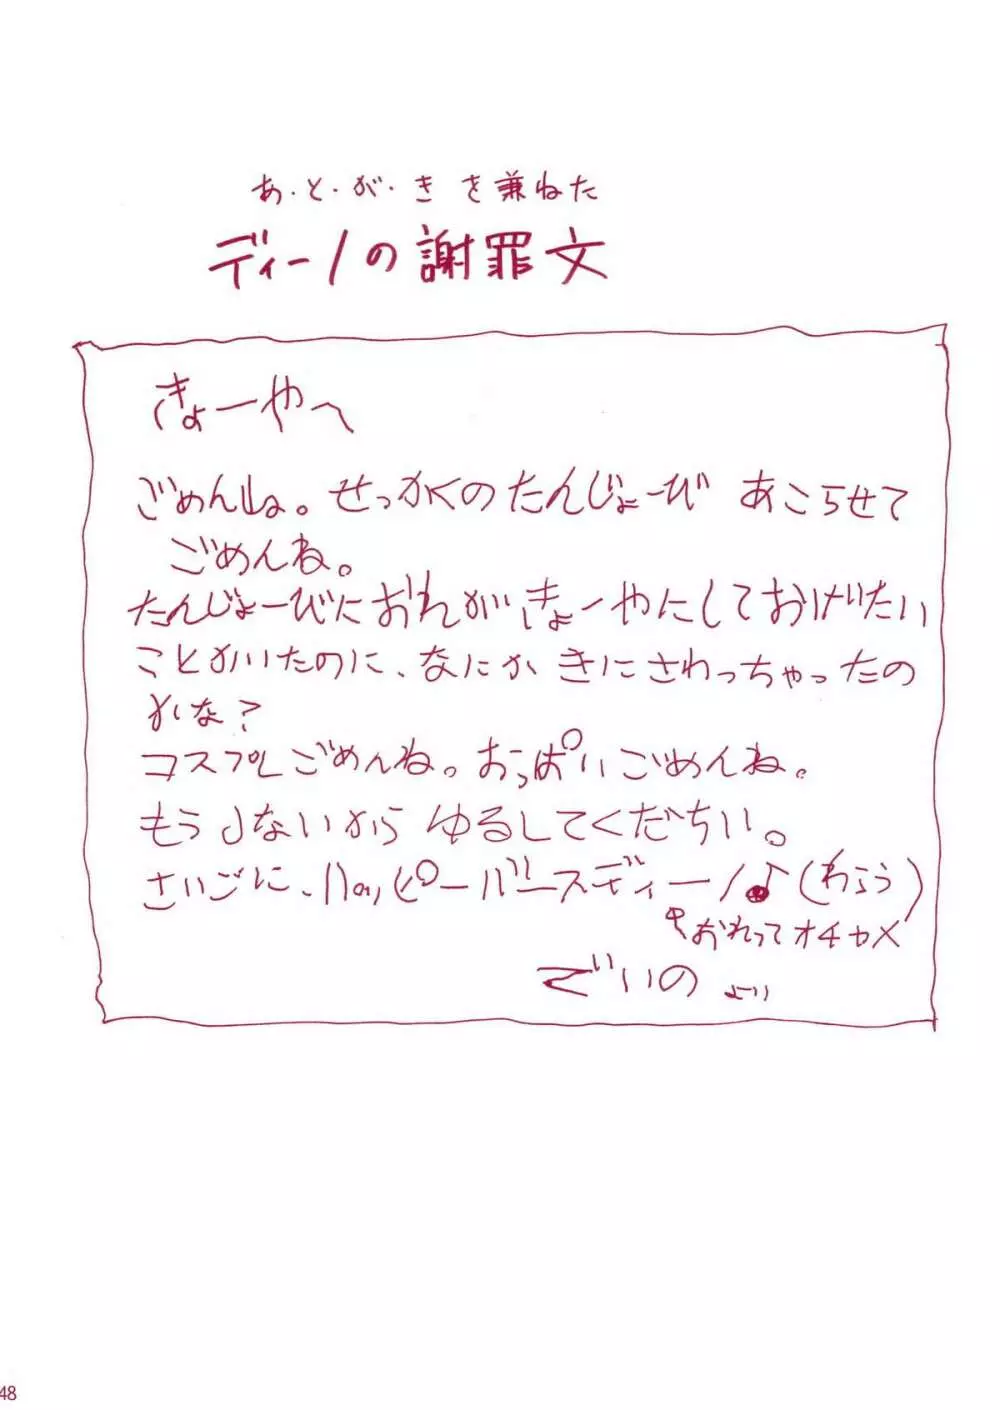 あ・と・が・きを兼ねた
ディーノの謝罪文
きょーやへ
ごめんね。せっかくのたんじょーび あこらせて
ごめんね。
たんじょーびにおれがきょーやにしておげたい
ことかいたのに、なにか きにさわっちゃったの
かな？
コスプレごめんね。おっぱいごめんね。
もうしないから ゆるしてくだちい。
さいごに、ハッピーバースディーノ♪(わらう)
おれってオチャメ
でぃーの より
48